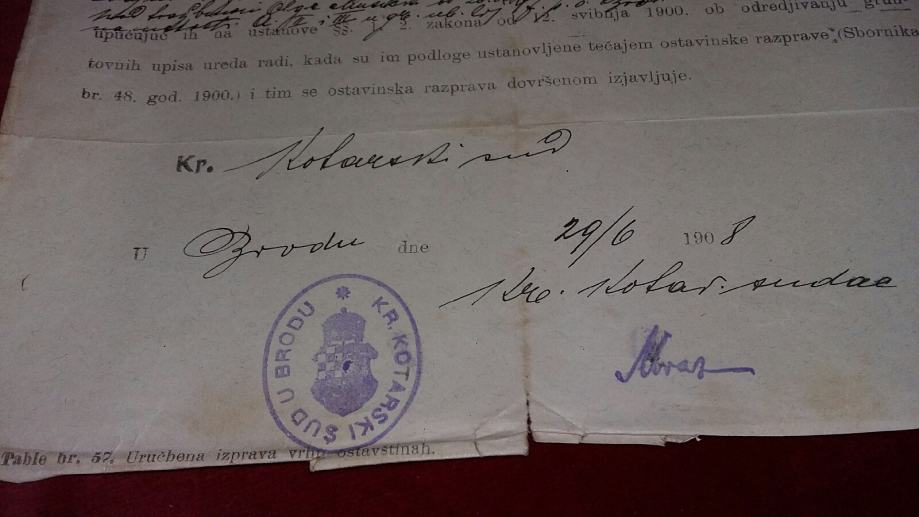 upućnjuć ih na ustanove §§. 1. 2. zakona od 2. svibnja 1900. ob odredjivanju
tovnih upisa ureda radi, kada su im podloge ustanovljene tečajem ostavinske razprave (Sbornika
br. 48. god. 1900.) i tim se ostavinska razprava dovršenom izjavljuje.
Kr. Kotarski sud
U Brodu dne 29/6 1908
Kr. Kotar. sudac
KR. KOTARSKI SUD U BRODU
Table br. 57. Uručbena izprava vrhu ostavštinah.